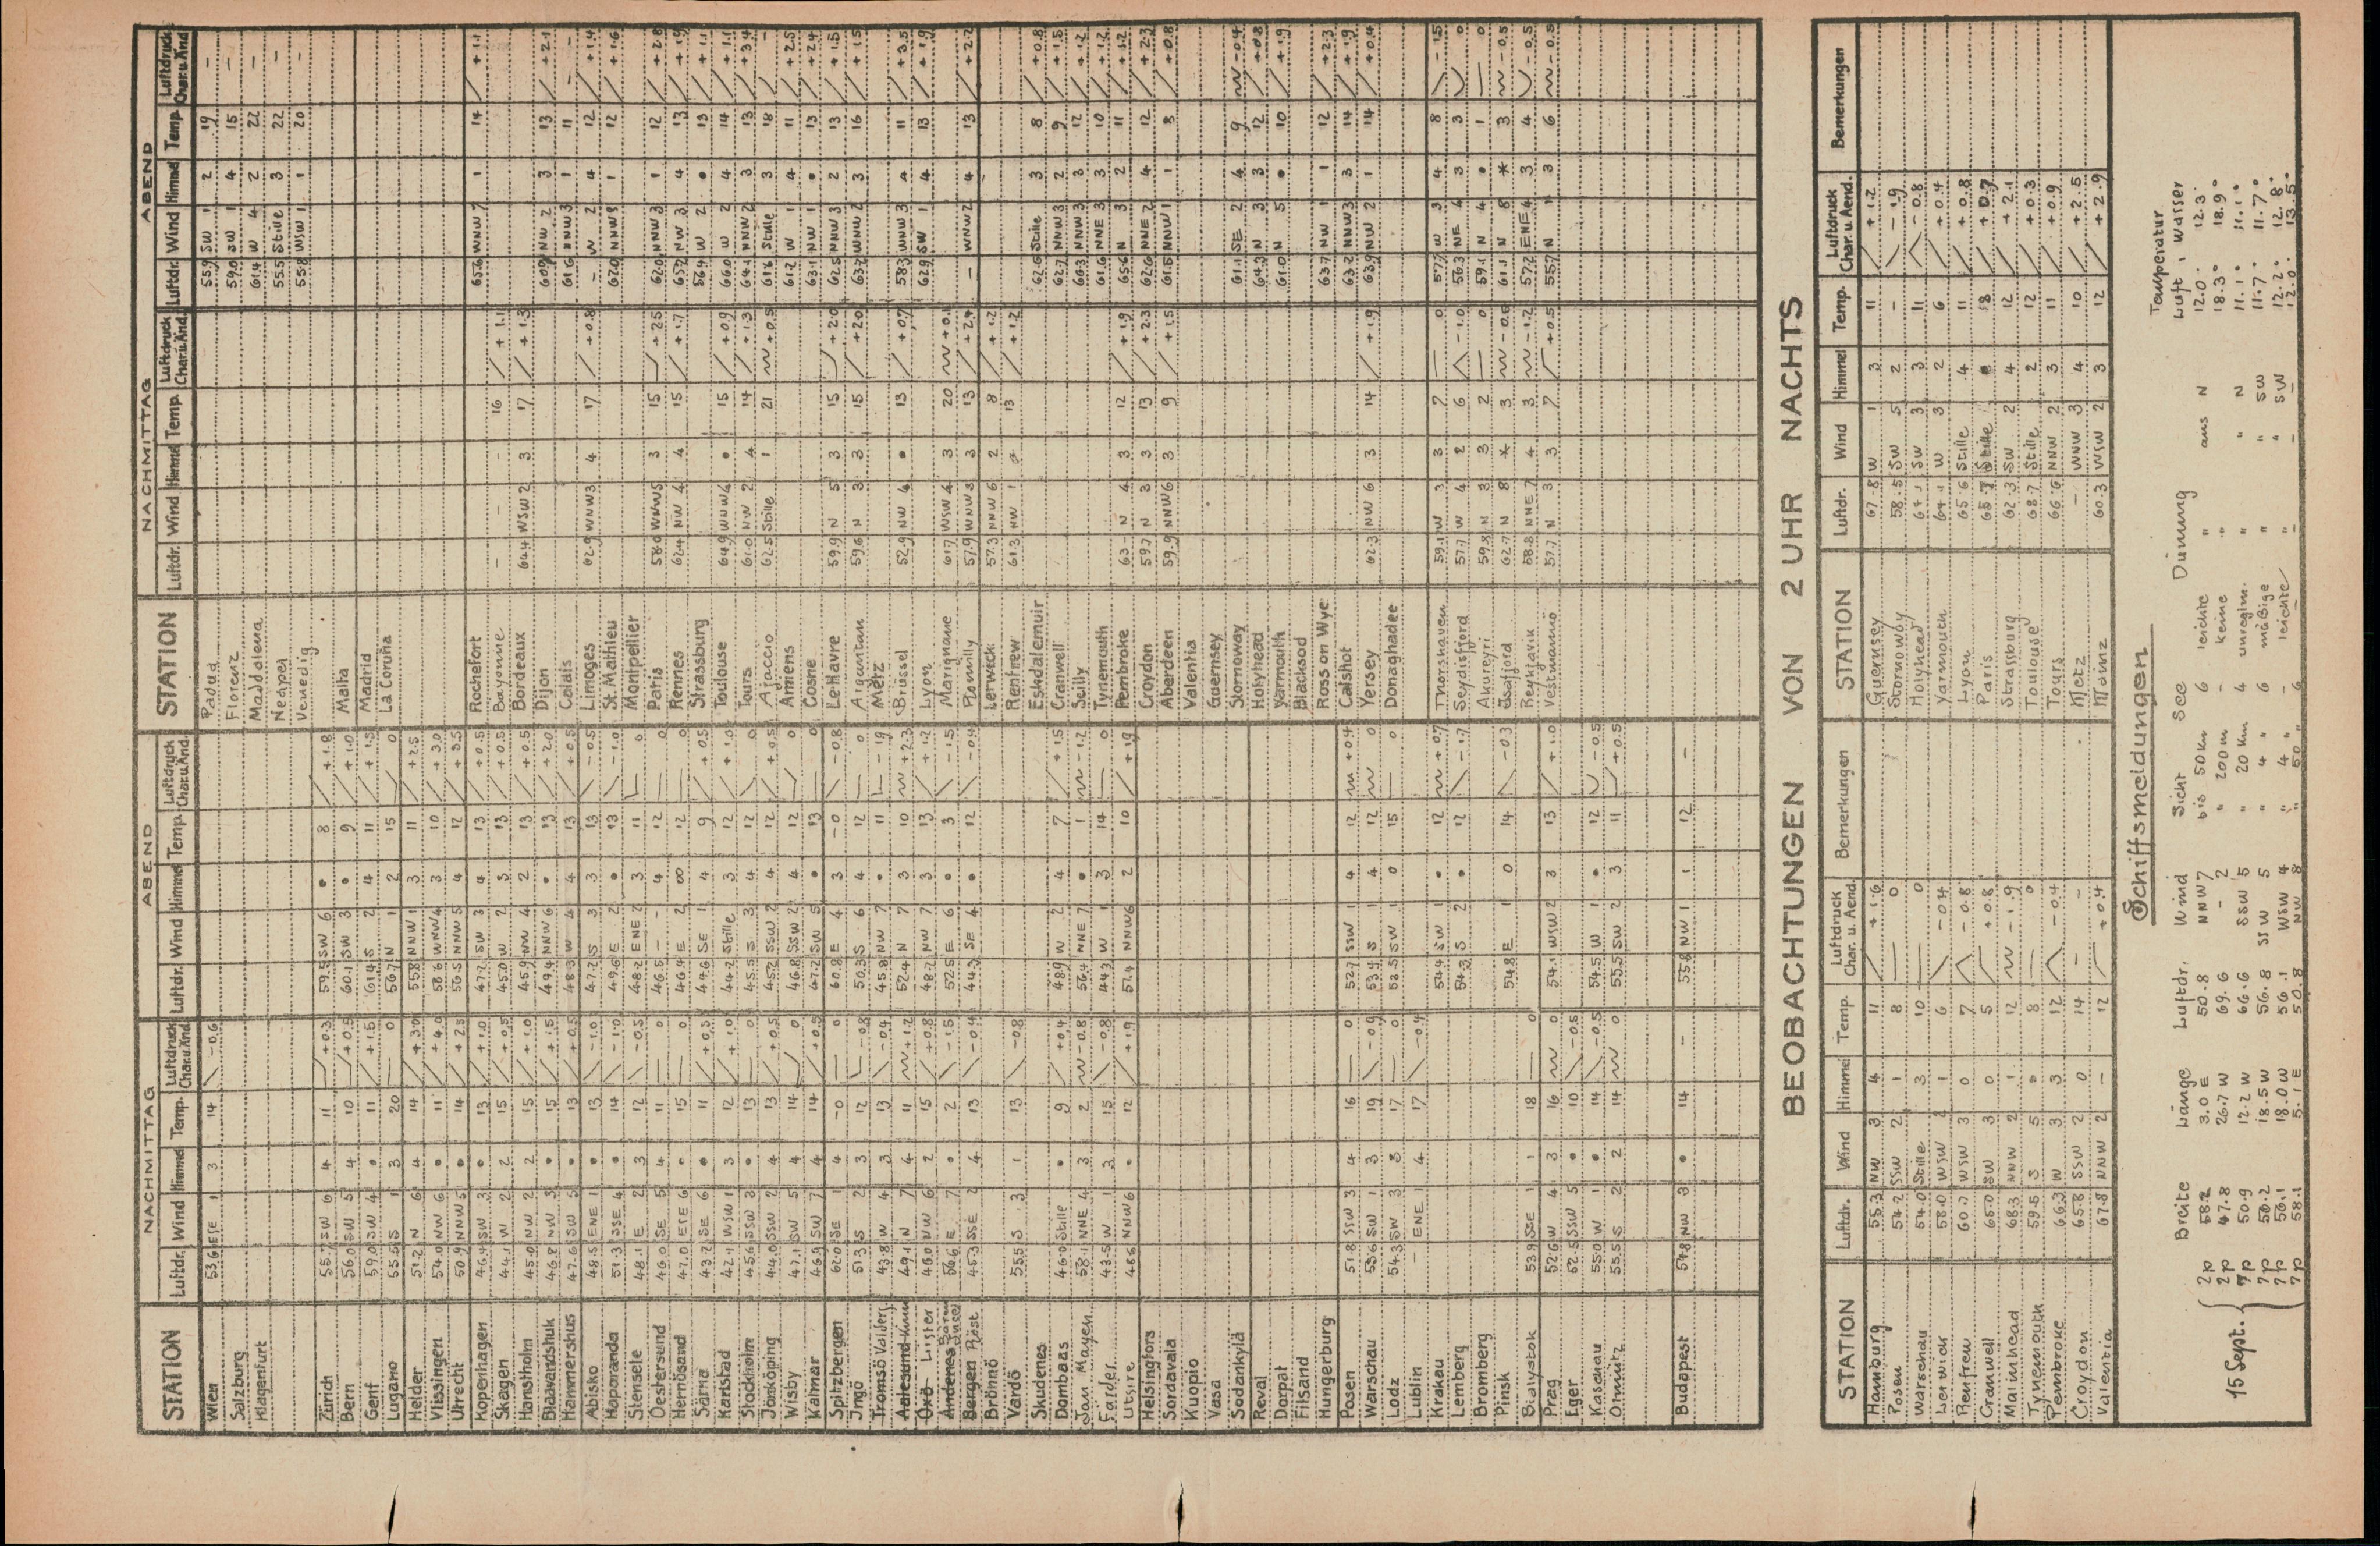 NACHMITTAG ABEND
STATION Luftdr. Wind Himmel Temp. Luftdruck Char.u.Änd. Luftdr. Wind Himmel Temp. Luftdruck Char.u.Änd.
Wien 53.6 ESE 1 3 14 -0.6
Salzburg
Klagenfurt
Zürich 55.7 SW 6 4 11 +0.3 59.5 SW 6 • 8 +1.8
Bern 56.0 SW 5 4 10 +0.5 60.1 SW 3 • 9 +1.0
Genf 59.0 SW 4 • 11 +1.5 61.4 S 2 4 11 +1.5
Lugano 55.5 S 1 3 20 0 56.7 N 1 2 15 0
Helder 51.2 N 6 4 14 +3.0 55.8 NNW 1 3 11 +2.5
Vlissingen 54.0 NW 6 • 11 +4.0 58.6 WNW 4 3 10 +3.0
Utrecht 50.9 NNW 5 • 14 +2.5 56.5 NNW 5 4 12 +3.5
Kopenhagen 46.4 SW 3 • 13 +1.0 47.2 SW 3 4 13 +0.5
Skagen 44.1 W 2 2 15 +0.5 45.0 W 2 3 13 +0.5
Hanstholm 45.0 NW 2 2 15 +1.0 45.9 NW 4 2 13 +0.5
Blaavandshuk 46.8 NW 3 • 15 +1.5 49.4 NNW 6 • 13 +2.0
Hammershus 47.6 SW 5 • 13 +0.5 48.3 W 4 4 13 +0.5
Abisko 48.5 ENE 1 • 13 -1.0 47.2 S 3 3 13 -0.5
Haparanda 51.3 SSE 4 • 14 -1.0 49.6 E 2 • 13 -1.0
Stensele 48.1 E 2 3 12 -0.5 48.2 ENE 2 3 11 0
Oestersund 46.0 SE 5 4 11 0 46.5 - - 4 12 0
Hernösand 47.0 ESE 6 • 15 0 46.4 E 2 ∞ 12 0
Särna 43.2 SE 6 • 11 +0.5 44.6 SE 1 4 9 +0.5
Karlstad 42.1 WSW 1 3 12 +1.0 44.2 Stille 3 12 +1.0
Stockholm 45.6 SSW 3 • 13 0 45.5 S 3 4 12 0
Jönköping 44.0 SSW 2 4 13 +0.5 45.2 SSW 2 4 12 +0.5
Wisby 47.1 SW 5 4 14 0 46.8 SSW 2 4 12 0
Kalmar 46.9 SW 7 4 14 +0.5 47.2 SW 5 • 13 0
Spitzbergen 62.0 SE 1 4 -0 0 60.8 E 4 3 -0 -0.8
Ingö 51.3 S 2 3 12 -0.8 50.3 S 6 4 12 0
Tromsö Valders. 43.8 W 4 3 13 -0.4 45.8 NW 7 • 11 -1.9
Aalesund Kinn 49.1 N 7 4 11 +1.2 52.4 N 7 3 10 +2.3
Oxö Lister 46.0 NW 6 2 15 +0.8 48.2 NW 7 3 13 +1.2
Andenes 56.6 E 7 • 2 -1.5 52.5 E 6 • 3 -1.5
Bergen Röst 45.3 SSE 2 4 13 -0.4 44.3 SE 4 • 12 -0.4
Brönnö
Vardö 55.5 S 3 1 13 -0.8
Skudenes
Dombaas 46.0 Stille • 9 +0.4 48.9 W 2 4 7 +1.5
Jan Mayen 58.1 NNE 4 3 2 -0.8 56.4 NNE 7 • 1 -1.2
Færder 43.5 W 1 3 15 -0.8 44.3 W 1 3 14 0
Utsire 48.6 NNW 6 • 12 +1.9 52.4 NNW 6 2 10 +1.9
Helsingfors
Sordavala
Kuopio
Vasa
Sodankylä
Reval
Dorpat
Filsand
Hungerburg
Posen 51.8 SSW 3 4 16 0 52.7 SSW 1 4 12 +0.4
Warschau 53.6 SW 1 3 19 -0.9 53.9 S 1 4 12 0
Lodz 54.3 SW 3 3 17 0 53.5 SW 1 0 15 0
Lublin - ENE 1 4 17 -0.4
Krakau 54.4 SW 1 • 12 +0.7
Lemberg 54.3 S 2 • 12 -1.7
Bromberg
Pinsk 54.8 E 1 0 14 -0.3
Bialystok 53.9 SSE 1 1 18 0
Prag 52.6 W 4 3 16 0 54.1 WSW 2 3 13 +1.0
Eger 52.5 SSW 5 • 10 -0.5
Kaschau 55.0 W 1 • 14 -0.5 54.5 W 1 • 12 -0.5
Olmütz 53.5 S 2 2 14 0 55.5 SW 2 3 11 +0.5
Budapest 54.8 NW 3 • 14 - 55.8 NW 1 1 12 -
NACHMITTAG ABEND
STATION Luftdr. Wind Himmel Temp. Luftdruck Char.u.Änd. Luftdr. Wind Himmel Temp. Luftdruck Char.u.Änd.
Padua 55.9 SW 1 2 19 -
Florenz 59.0 SW 1 4 15 -
Maddalena 61.4 W 4 2 22 -
Neapel 55.5 Stille 3 22 -
Venedig 55.8 WSW 1 1 20 -
Malta
Madrid
La Coruña
Rochefort 65.6 WNW 7 1 14 +1.1
Bayonne - - - 16 +1.1
Bordeaux 64.4 WSW 2 3 17 +1.3
Dijon 60.9 NW 2 3 13 +2.1
Calais 61.6 NNW 3 1 11 -
Limoges 62.9 WNW 3 4 17 +0.8 - W 2 4 12 +1.4
St. Mathieu 67.0 NNW 5 1 12 +1.6
Montpellier
Paris 58.0 WNW 5 3 15 +2.5 62.0 NNW 3 1 12 +2.8
Rennes 62.4 NW 4 4 15 +1.7 65.2 NW 3 4 13 +1.9
Strassburg 56.4 W 2 • 13 +1.1
Toulouse 64.9 WNW 4 • 15 +0.9 66.0 W 2 4 14 +1.1
Tours 61.0 NW 2 4 14 +1.3 64.1 NNW 2 3 13 +3.4
Ajaccio 62.5 Stille 1 21 +0.5 61.6 Stille 3 18 -
Amiens 61.2 W 1 4 11 +2.5
Cosne 63.1 NW 1 • 13 +2.4
Le Havre 59.9 N 5 3 15 +2.0 62.5 NNW 3 2 13 +1.5
Argentan 59.6 N 3 3 15 +2.0 63.2 WNW 2 3 16 +1.5
Metz
Brüssel 52.9 NW 4 • 13 +0.7 58.3 WNW 3 4 11 +3.5
Lyon 62.9 SW 1 4 13 +1.9
Marignane 61.7 WSW 4 3 20 +0.1
Romilly 57.9 WNW 3 3 13 +2.4 - WNW 2 4 13 +2.2
Lerwick 57.3 NNW 6 2 8 +1.2
Renfrew 61.3 NW 1 2 13 +1.2
Eskdalemuir 62.6 Stille 3 8 +0.8
Cranwell 62.7 NNW 3 2 9 +1.5
Scilly 66.3 NNW 3 3 12 +1.2
Tynemouth 61.6 NNE 3 3 10 +1.2
Pembroke 63.- N 4 3 12 +1.9 65.6 N 3 2 11 +1.2
Croydon 59.7 N 3 3 13 +2.3 62.6 NNE 2 4 12 +2.3
Aberdeen 59.9 NNW 6 3 9 +1.5 61.5 NNW 1 1 8 +0.8
Valentia
Guernsey
Stornoway 61.1 SE 2 4 9 -0.4
Holyhead 64.3 N 3 3 12 +0.8
Yarmouth 61.0 N 5 • 10 +1.9
Blacksod
Ross on Wye 63.7 NW 1 1 12 +2.3
Calshot 63.2 NNW 3 3 14 +1.9
Yersey 62.3 NW 6 3 14 +1.9 63.9 NW 2 1 14 +0.4
Donaghadee
Thorshaven 59.1 W 3 3 7 0 57.7 W 3 4 8 -1.5
Seydisfjord 57.7 W 4 2 6 -1.0 56.3 NE 4 3 3 0
Akureyri 59.8 N 3 3 2 0 59.1 N 4 • 1 0
Isafjord 62.7 N 8 * 3 -0.6 61.1 N 8 * 3 -0.5
Reykjavik 58.8 NNE 7 4 3 -1.2 57.2 ENE 4 3 4 -0.5
Vestmannö 57.7 N 3 3 7 +0.5 55.7 N 3 6 -0.5
BEOBACHTUNGEN VON 2 UHR NACHTS
STATION Luftdr. Wind Himmel Temp. Luftdruck Char. u. Aend. Bemerkungen STATION Luftdr. Wind Himmel Temp. Luftdruck Char. u. Aend. Bemerkungen
Hamburg 55.3 NW 3 4 11 +1.6 Guernsey 67.8 W 1 3 11 +1.2
Posen 54.2 SSW 2 1 8 0 Stornoway 58.5 SW 5 2 - -1.9
Warschau 54.0 Stille 3 10 0 Holyhead 64.1 SW 3 3 11 -0.8
Lerwick 58.0 WSW 2 1 6 -0.4 Yarmouth 64.1 W 3 2 6 +0.4
Renfrew 60.7 WSW 3 0 7 -0.8 Lyon 65.6 Stille 4 11 +0.8
Cranwell 65.0 SW 3 0 5 +0.8 Paris 65.7 Stille • 8 +0.7
Mainhead 68.3 NNW 2 1 12 -1.9 Strassburg 62.3 SW 2 4 12 +2.1
Tynemouth 59.5 S 5 • 8 0 Toulouse 68.7 Stille 2 12 +0.3
Pembroke 66.3 W 3 3 12 -0.4 Tours 66.6 NNW 2 3 11 +0.9
Croydon 65.8 SSW 2 0 14 - Metz - WNW 3 4 10 +2.5
Valentia 67.8 NNW 2 - 12 +0.4 Mainz 60.3 WSW 2 3 12 +2.9
Schiffsmeldungen
Breite Länge Luftdr. Wind Sicht See Dünung Temperatur Luft Wasser
15 Sept. { 2p 58.2 3.0 E 50.8 NNW 7 bis 50 km 6 leichte " aus N 12.0° 12.3°
2p 47.8 26.7 W 69.6 - 2 " 200 m - keine " 18.3° 18.9°
7p 50.9 12.2 W 66.6 SSW 5 " 20 km 4 unreglm. " " N 11.1° 11.1°
7p 50.2 18.5 W 56.8 SSW 5 " 4 " 6 mäßige " " SW 11.7° 11.7°
7p 56.1 18.0 W 56.1 WSW 4 " 4 " - leichte " " SW 12.2° 12.8°
7p 58.1 5.1 E 50.8 NW 8 " 50 " 6 - - - 12.0° 13.5°